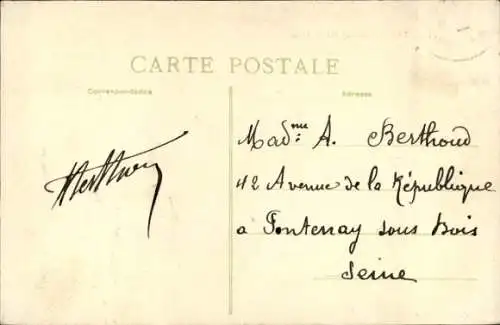 CARTE POSTALE
Correspondance
Adresse
Mad.me A. Berthoud
42 Avenue de la République
a Fontenay sous Bois
Seine